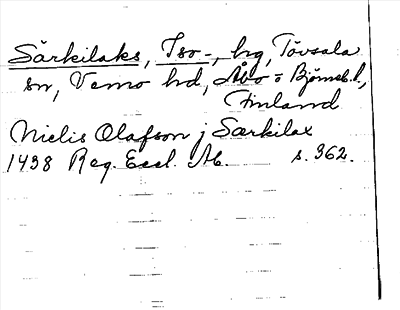 Särkilaks, Iso-, hg, Tövsala
sn, Vemo hd, Åbo o Björneb. l.,
Finland
Nielis Olafson j Særkilax
1438 Reg. Eccl. Ab. s. 362.